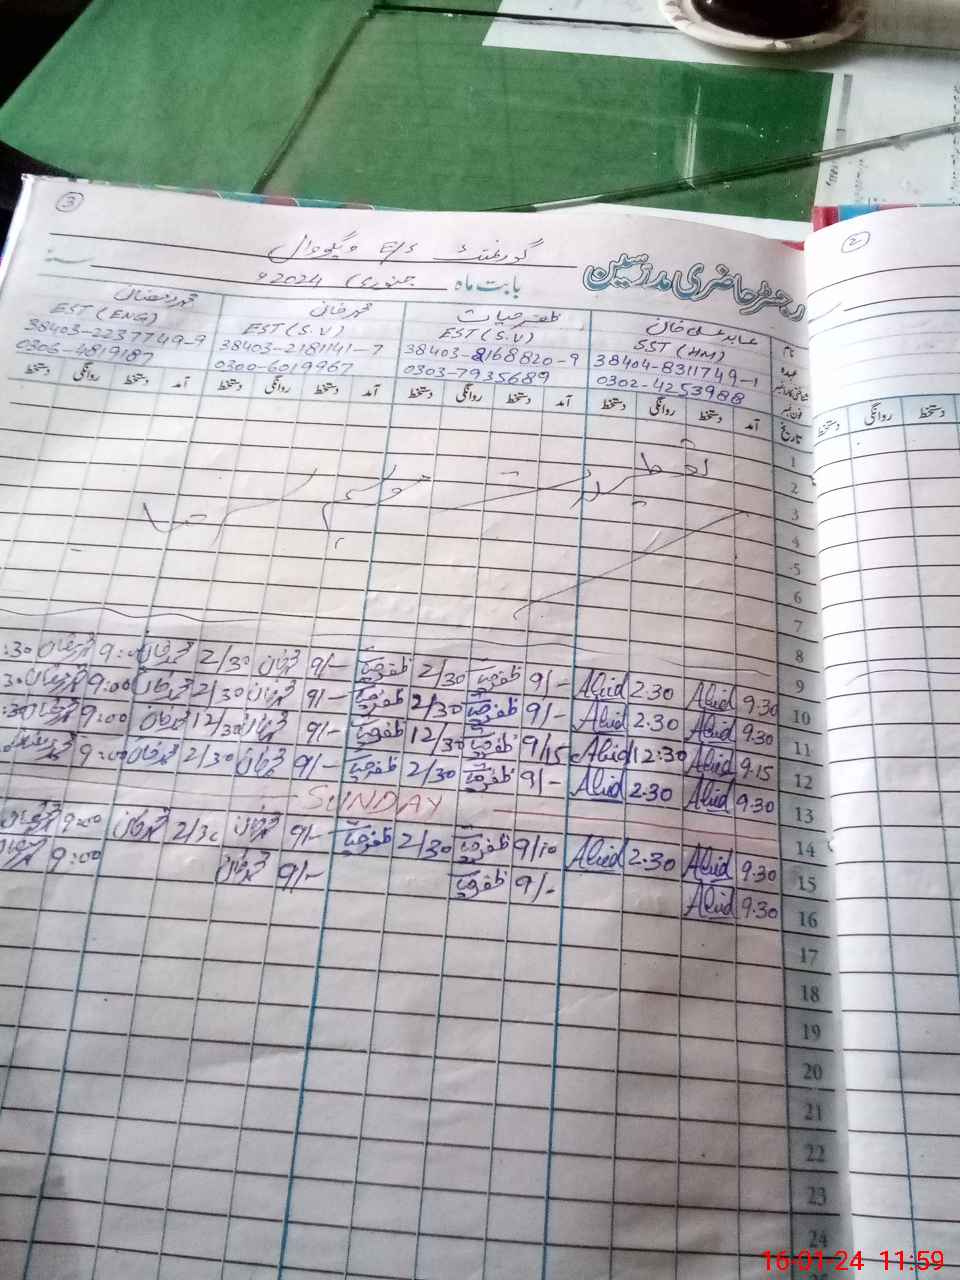 3
گورنمنٹ E/S
رجسٹر حاضری مدرسین
بابت ماہ جنوری 2024ء سنہ
نام عابد علی خان ظفر حیات محمد خان محمد رمضان
عہدہ SST (HM) EST (S.V) EST (S.V) EST (ENG)
شناختی کارڈ نمبر 38404-8311749-1 38403-2168820-9 38403-2181141-7 38403-2237749-9
فون نمبر 0302-4253988 0303-7935689 0300-6019967 0306-4819187
تاریخ آمد دستخط روانگی دستخط آمد دستخط روانگی دستخط آمد دستخط روانگی دستخط آمد دستخط روانگی دستخط
1
2
3
4
5
6
7
8
9 9.30 Abid 2.30 Abid 9/- ظفر حیات 2/30 ظفر حیات 9/- محمد خان 2/30 محمد خان 9:00 محمد رمضان :30
10 9.30 Abid 2.30 Abid 9/- ظفر حیات 2/30 ظفر حیات 9/- محمد خان 2/30 محمد خان 9:00 محمد رمضان :30
11 9.15 Abid 12.30 Abid 9/15 ظفر حیات 12/30 ظفر حیات 9/- محمد خان 12/30 محمد خان 9:00 محمد رمضان :30
12 9.30 Abid 2.30 Abid 9/- ظفر حیات 2/30 ظفر حیات 9/- محمد خان 2/30 محمد خان 9:00 محمد رمضان
13
SUNDAY
14 9.30 Abid 2.30 Abid 9/10 ظفر حیات 2/30 ظفر حیات 9/- محمد خان 2/30 محمد خان 9:00 محمد رمضان
15 9.30 Abid 9/- ظفر حیات 9/- محمد خان 9:00 محمد رمضان
16
17
18
19
20
21
22
23
24
2
دستخط روانگی دستخط
16-01-24 11:59